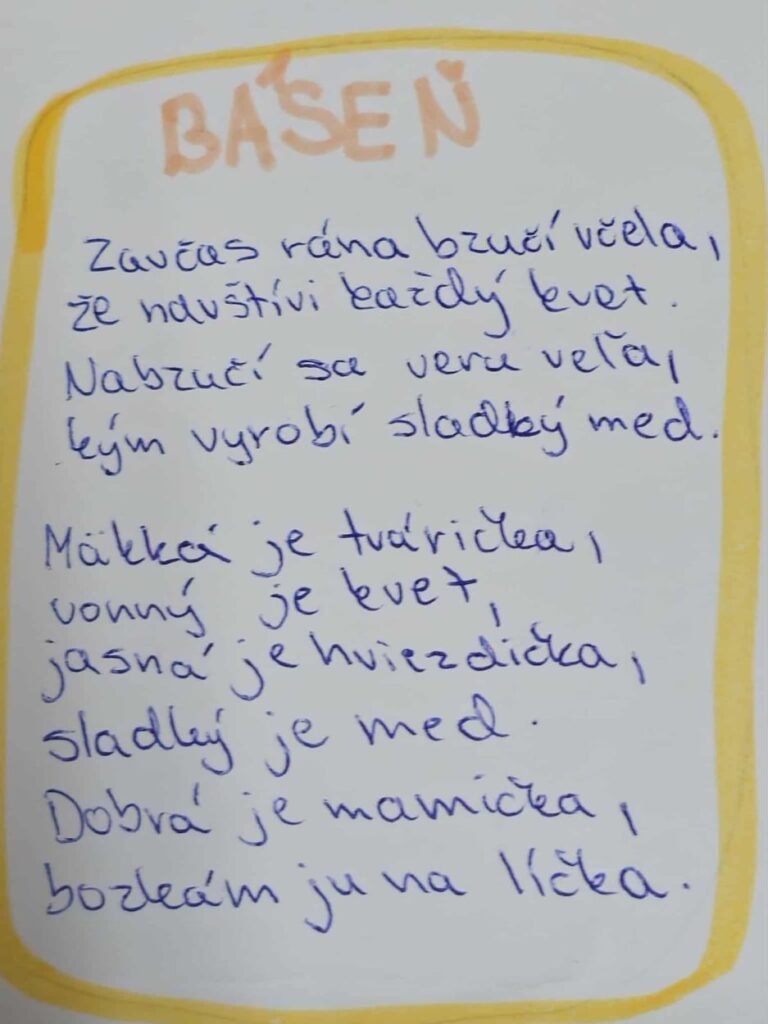 BÁSEŇ
Zavčas rána bzučí včela,
že navštívi každý kvet.
Nabzučí sa veru veľa,
kým vyrobí sladký med.
Mäkká je tvárička,
vonný je kvet,
jasná je hviezdička,
sladký je med.
Dobrá je mamička,
bozkám ju na líčka.